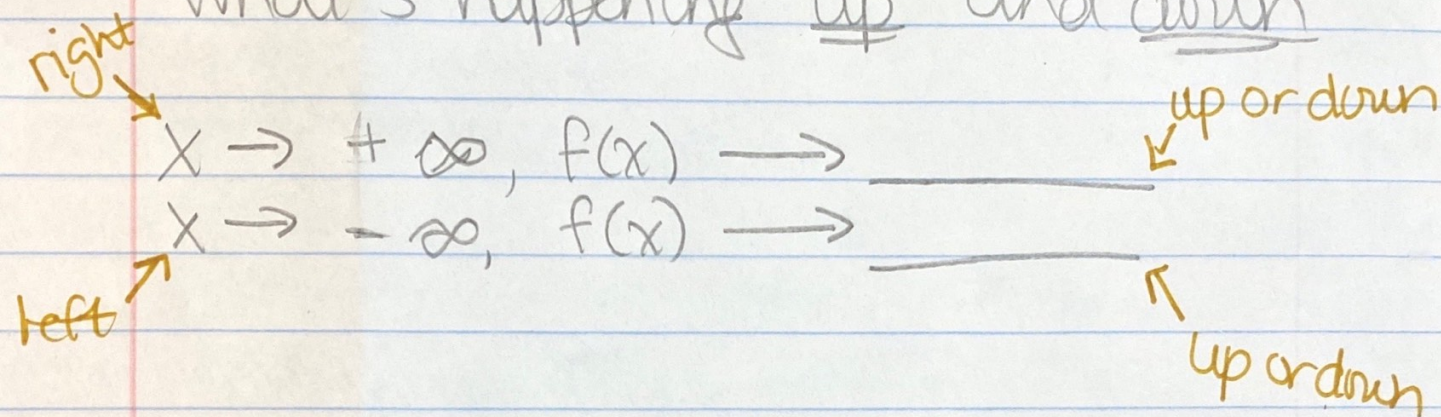 what's happening up and down
right
up or down
X → + ∞, f(x) → ______
X → - ∞, f(x) → ______
left
up or down